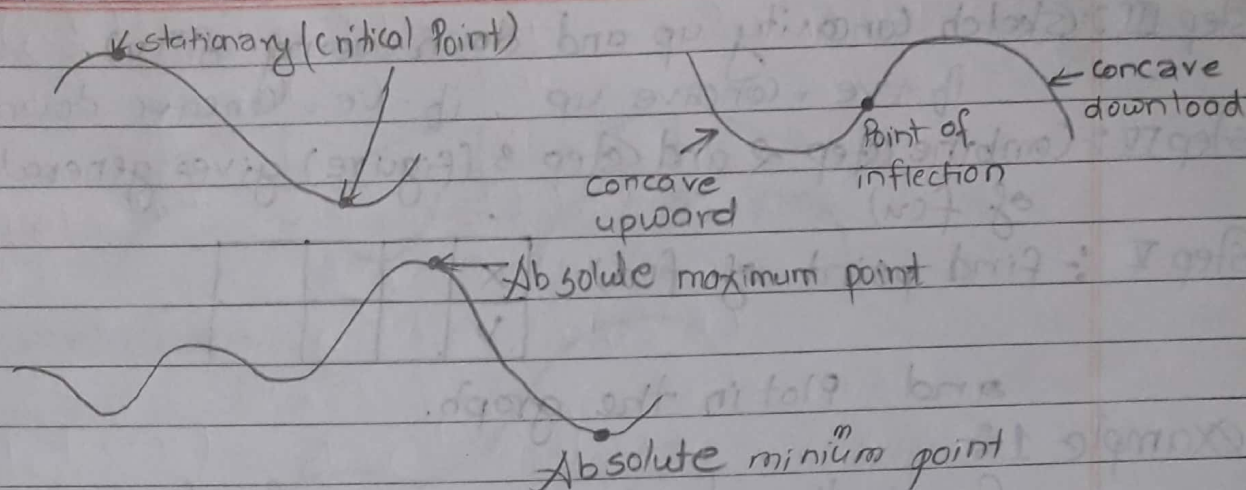 stationary (Critical Point)
concave
downlood
Point of
inflection
concave
upword
Absolute maximum point
Absolute miniumm point